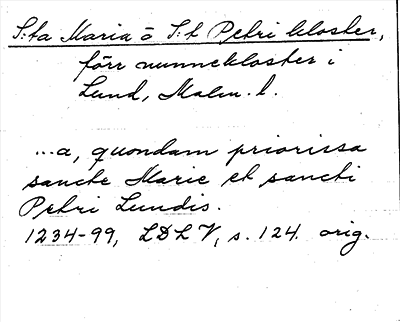 S:ta Maria o S:t Petri kloster,
förr nunnekloster i
Lund, Malm. l.
...a, quondam priorissa
sancte Marie et sancti
Petri Lundis.
1234-99, LDLV, s. 124. orig.